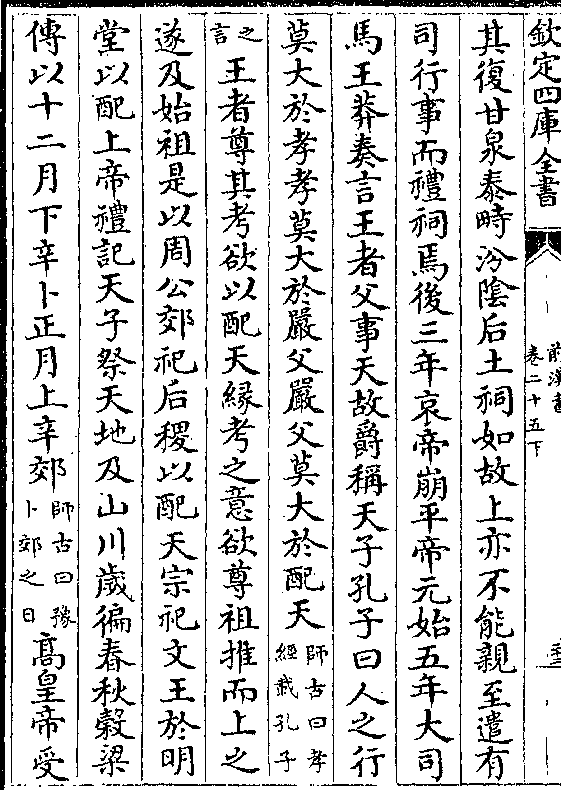 欽定四庫全書
前漢書
卷二十五下
其復甘泉泰畤汾陰后土祠如故上亦不能親至遣有
司行事而禮祠焉後三年哀帝崩平帝元始五年大司
馬王莽奏言王者父事天故爵稱天子孔子曰人之行
莫大於孝孝莫大於嚴父嚴父莫大於配天師古曰孝經載孔子
之言王者尊其考欲以配天緣考之意欲尊祖推而上之
遂及始祖是以周公郊祀后稷以配天宗祀文王於明
堂以配上帝禮記天子祭天地及山川歲徧春秋穀梁
傳以十二月下辛卜正月上辛郊師古曰豫卜郊之日高皇帝受